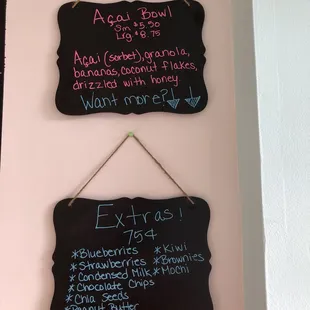 Açai Bowl
Sm $5.50
Lrg $8.75
Açai (sorbet), granola,
bananas, coconut flakes,
drizzled with honey.
Want more?
Extras!
75¢
*Blueberries *Kiwi
*Strawberries *Brownies
*Condensed Milk *Mochi
*Chocolate Chips
*Chia Seeds
*Peanut Butter